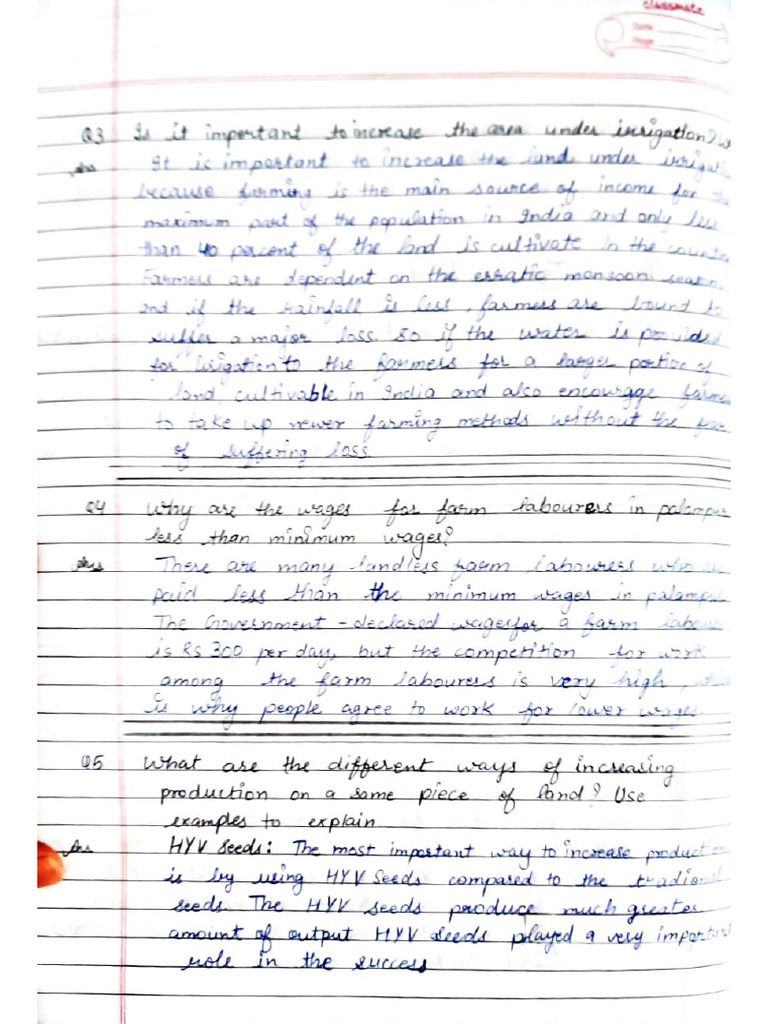 classmate
Date
Page
Q3 Is it important to increase the area under irrigation?
Ans It is important to increase the land under
because farming is the main source of income for the
maximum part of the population in India and only less
than 40 percent of the land is cultivate in the
Farmers are dependent on the erratic monsoon season
and if the rainfall is less, farmers are bound to
suffer a major loss. so if the water is provided
for irigation to the farmers for a larger portion of
land, cultivable in India and also encouragge
to take up newer farming methods without the
of suffering loss
Q4 Why are the wages for farm labourers in palampur
less than minimum wages?
Ans There are many landless farm labourers who are
paid less than the minimum wages in palampur
The Government-declared wages for a farm
is Rs 300 per day, but the competition for work
among the farm labourers is very high,
is why people agree to work for lower wages.
Q5 What are the different ways of increasing
production on a same piece of land? Use
examples to explain
Ans HYV Seeds: The most important way to increase
is by using HYV Seeds compared to the
seeds. The HYV seeds produce much greater
amount of output HYV seeds played a very important
role in the success